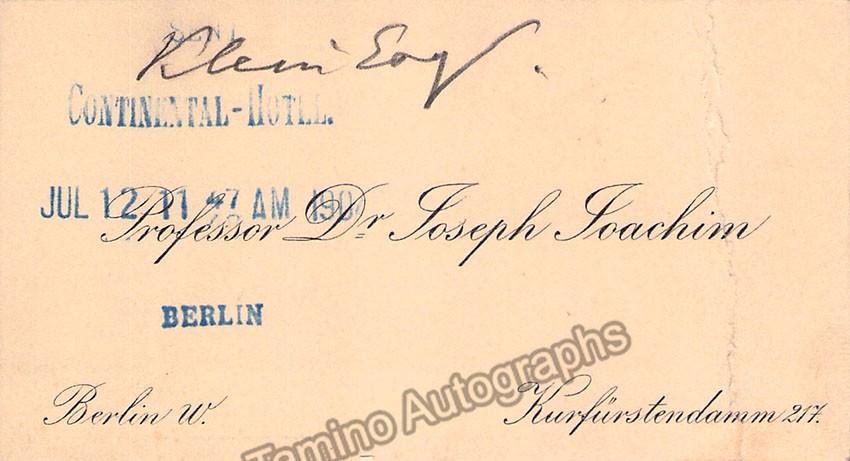 SENT
Klein Esq.
CONTINENTAL-HOTEL.
JUL 12 11 47 AM 190
Professor Dr Joseph Joachim
BERLIN
Berlin W.
Kurfürstendamm 217.
Tamino Autographs